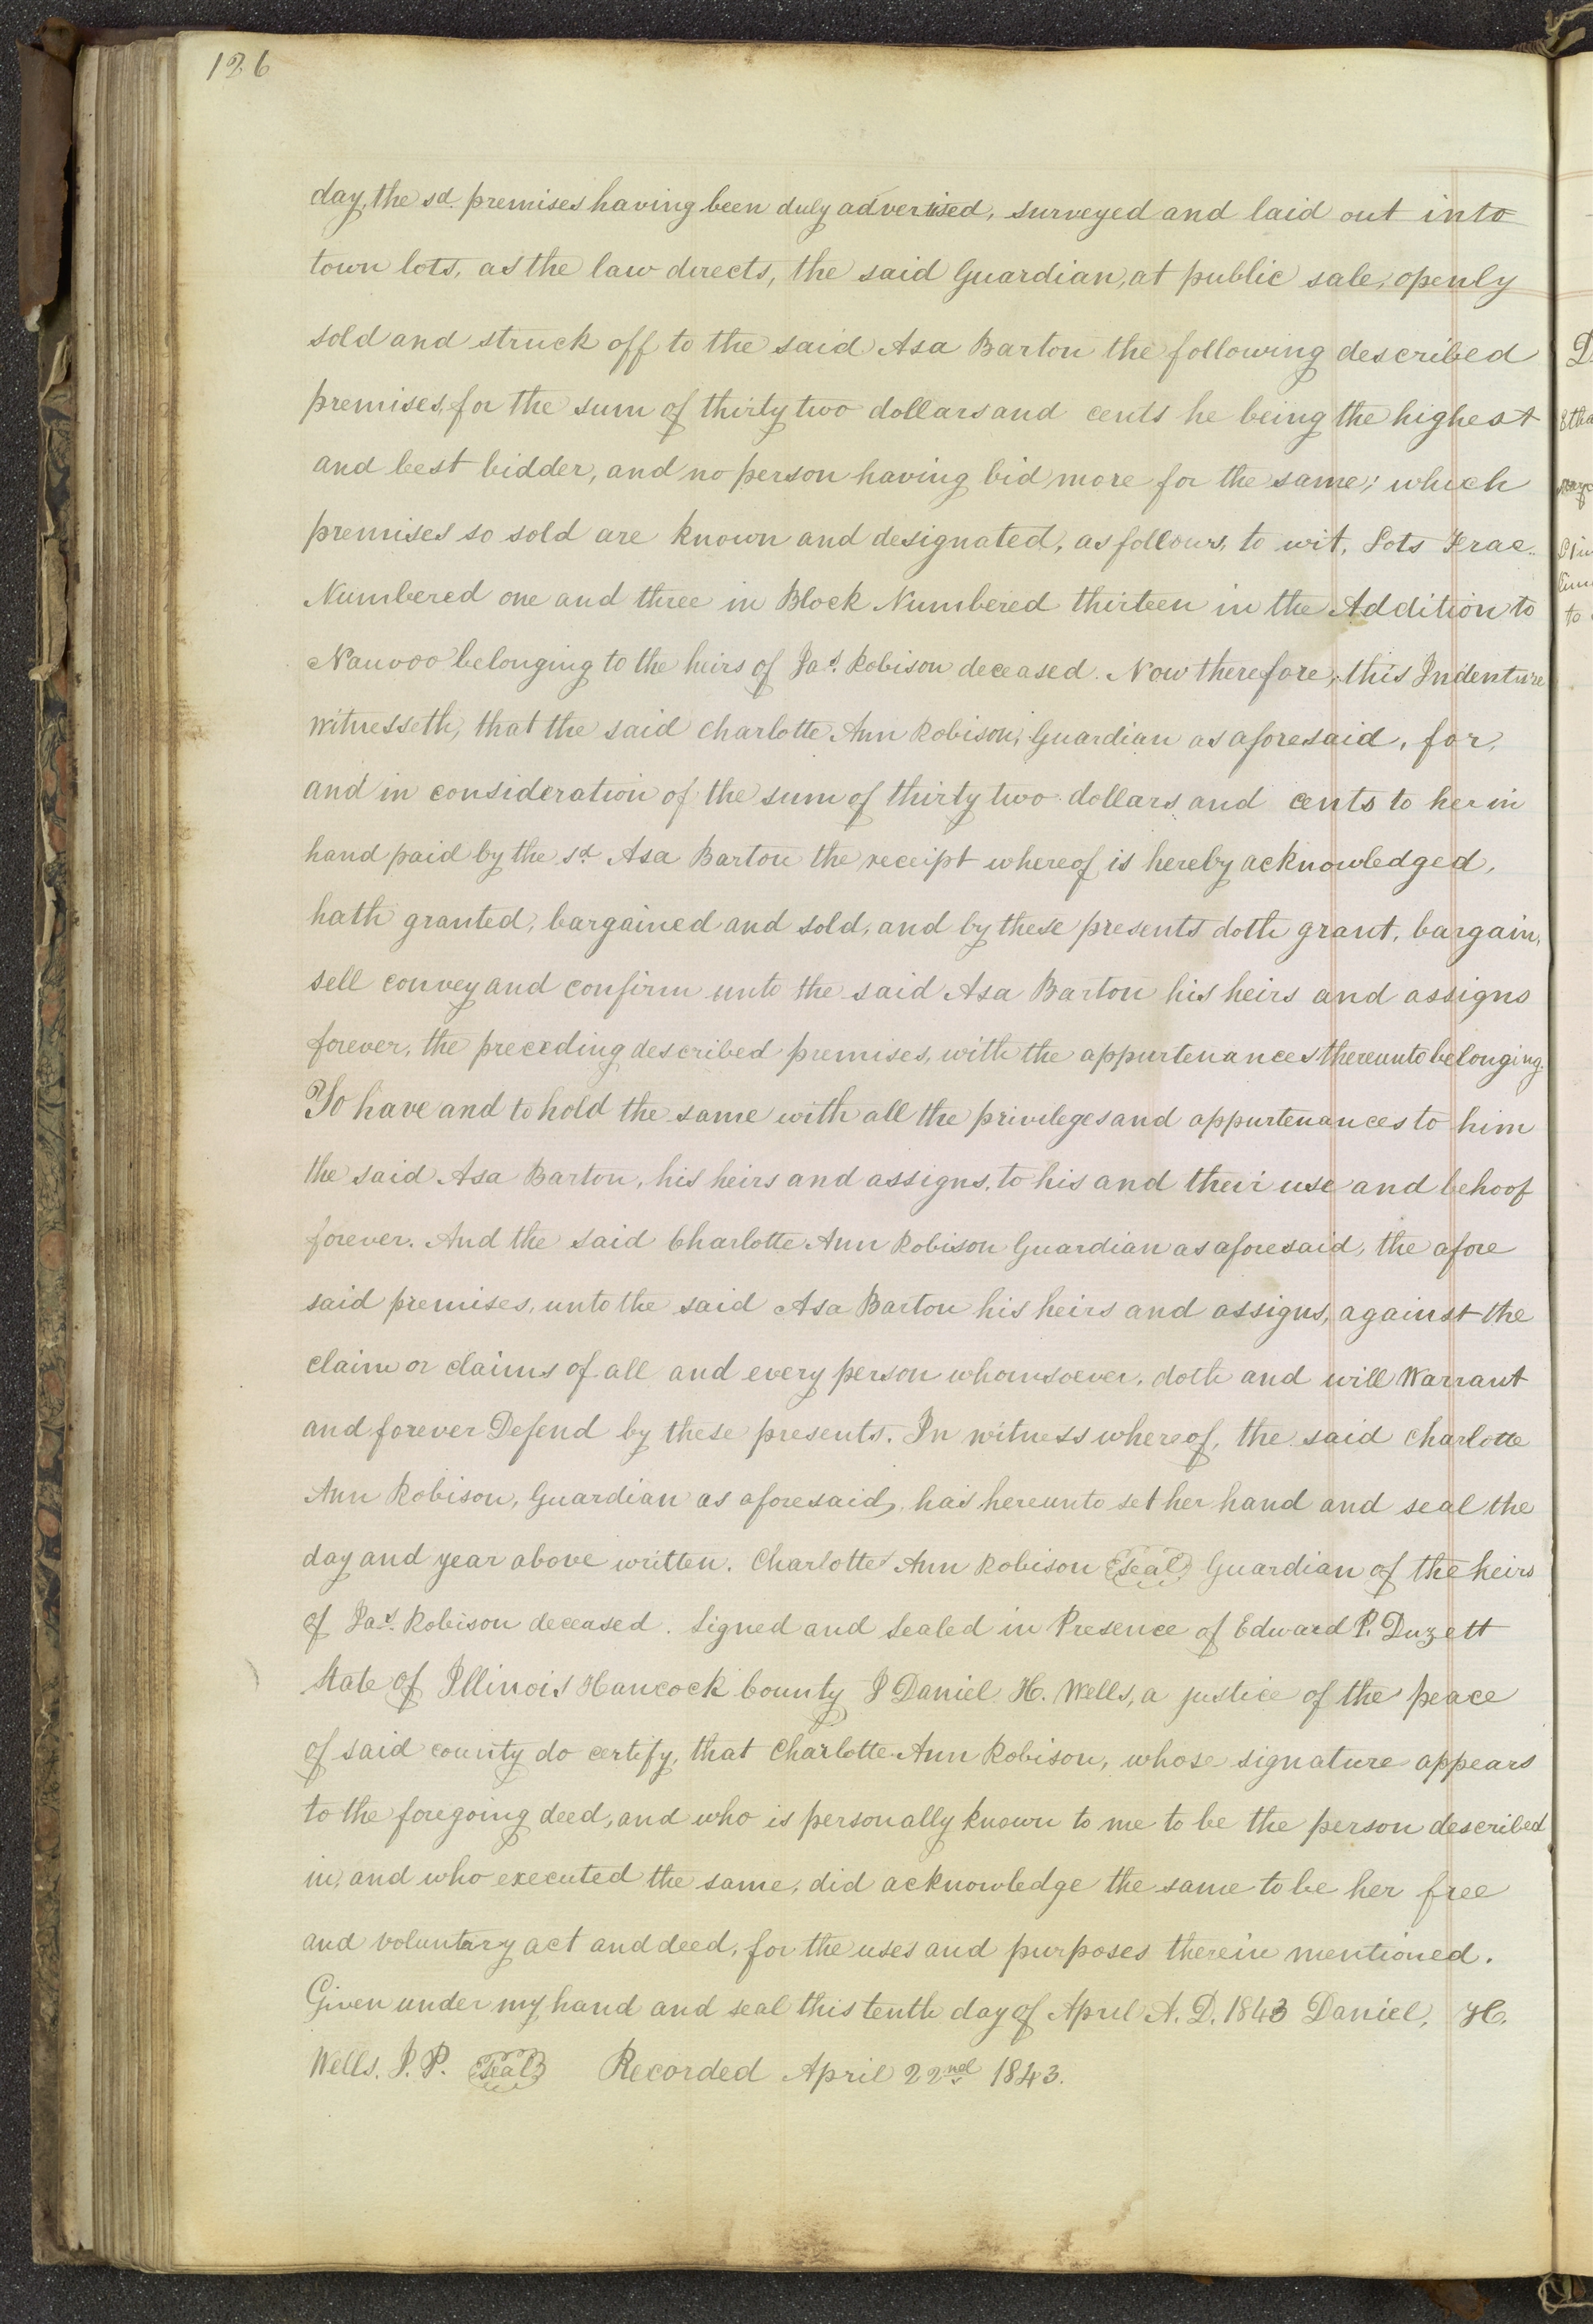 126
day, the sd. premises having been duly advertised, surveyed and laid out into
town lots, as the law directs, the said Guardian, at public sale, openly
sold and struck off to the said Asa Barton the following described
premises, for the sum of thirty two dollars and cents he being the highest
and best bidder, and no person having bid more for the same; which
premises so sold are known and designated, as follows, to wit, Lots Frac.
Numbered one and three in Block Numbered thirteen in the Addition to
Nauvoo belonging to the heirs of Jas. Robison deceased. Now therefore, this Indenture
witnesseth, that the said Charlotte Ann Robison, Guardian as aforesaid, for,
and in consideration of the sum of thirty two dollars and cents to her in
hand paid by the sd Asa Barton the receipt whereof is hereby acknowledged,
hath granted, bargained and sold, and by these presents doth grant, bargain,
sell convey and confirm unto the said Asa Barton his heirs and assigns
forever, the preceding described premises, with the appurtenances thereunto belonging.
To have and to hold the same with all the privileges and appurtenances to him
the said Asa Barton, his heirs and assigns, to his and their use and behoof
forever. And the said Charlotte Ann Robison Guardian as aforesaid, the afore
said premises, unto the said Asa Barton his heirs and assigns, against the
claim or claims of all and every person whomsoever, doth and will Warrant
and forever Defend by these presents. In witness whereof, the said Charlotte
Ann Robison, Guardian as aforesaid, has hereunto set her hand and seal the
day and year above written. Charlotte Ann Robison Seal Guardian of the heirs
of Jas. Robison deceased. Signed and Sealed in Presence of Edward P. Duzett
State of Illinois Hancock County I Daniel H. Wells, a justice of the peace
of said county do certify, that Charlotte Ann Robison, whose signature appears
to the foregoing deed, and who is personally known to me to be the person described
in, and who executed the same, did acknowledge the same to be her free
and voluntary act and deed, for the uses and purposes therein mentioned.
Given under my hand and seal this tenth day of April A. D. 1843 Daniel, H.
Wells. J. P. Seal Recorded April 22nd 1843.